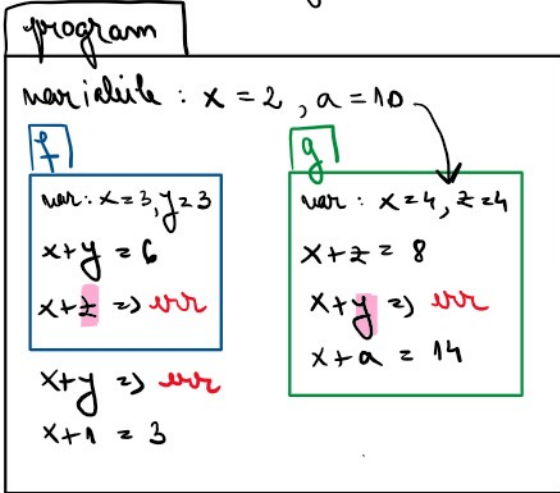 program
variabile : x = 2 , a = 10
f
var : x = 3, y = 3
x+y = 6
x+z => err
x+y => err
x+1 = 3
g
var : x = 4, z = 4
x+z = 8
x+y => err
x+a = 14